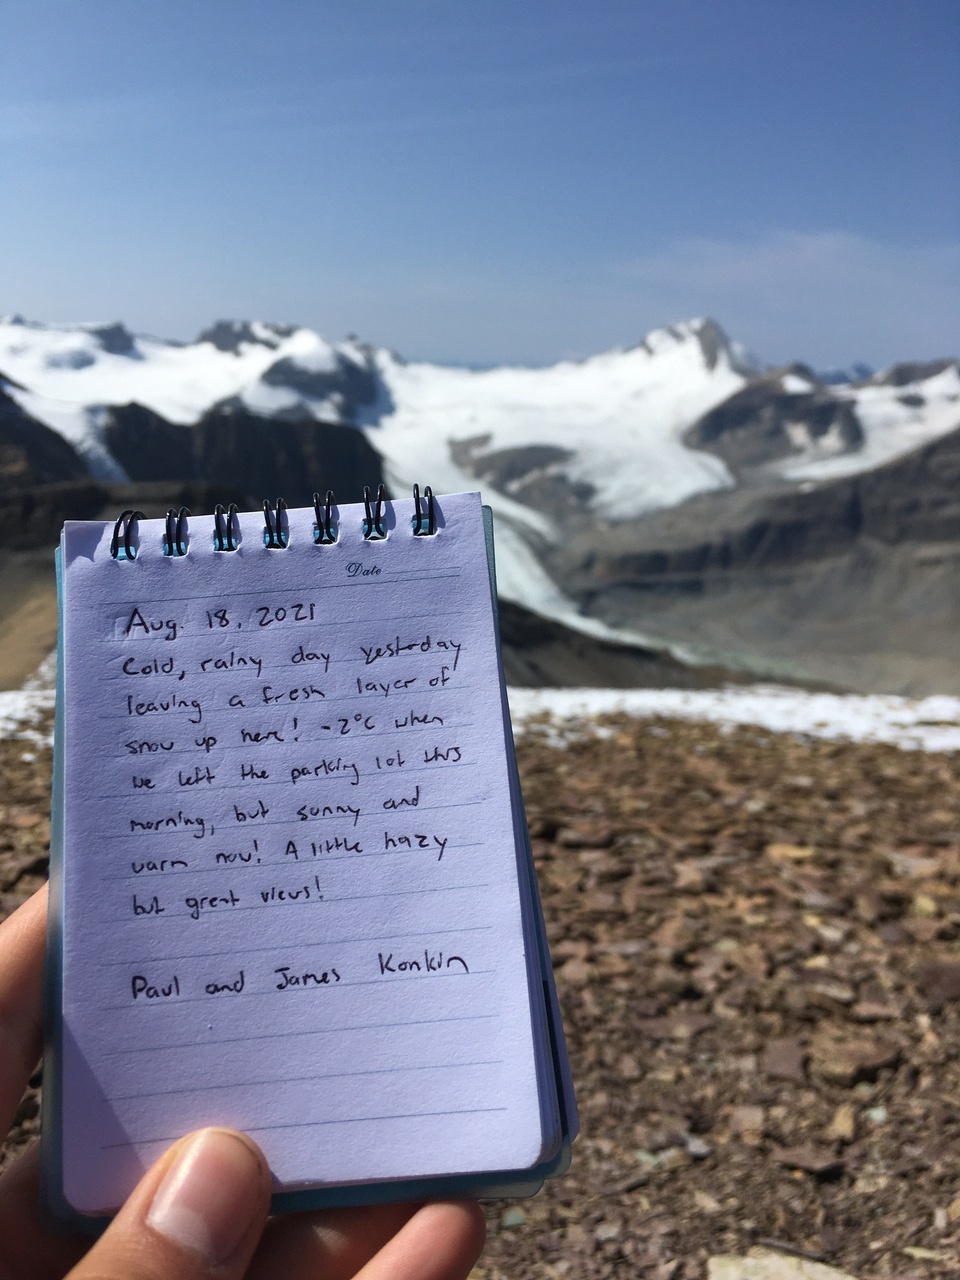 Date
Aug. 18, 2021
Cold, rainy day yesterday
leaving a fresh layer of
snow up here! -2°C when
we left the parking lot this
morning, but sunny and
warm now! A little hazy
but great views!
Paul and James Konkin